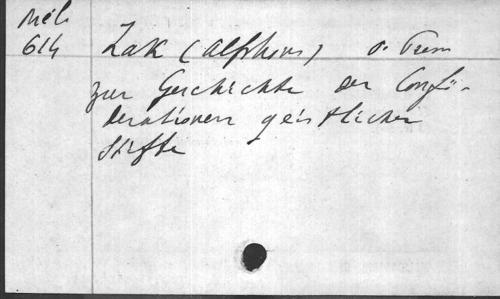 Mél.
614
Zak (Alphons) O. Prem
zur Geschichte der Confö-
derationen geistlicher
Stifte